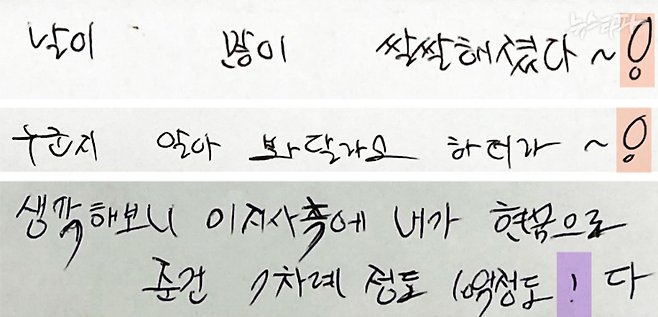 뉴스타파
날이 많이 쌀쌀해졌다~!
누군지 알아 봐달라고 하더라~!
생각해보니 이지사측에 내가 현금으로
준건 7차례 정도 10억정도 ! 다